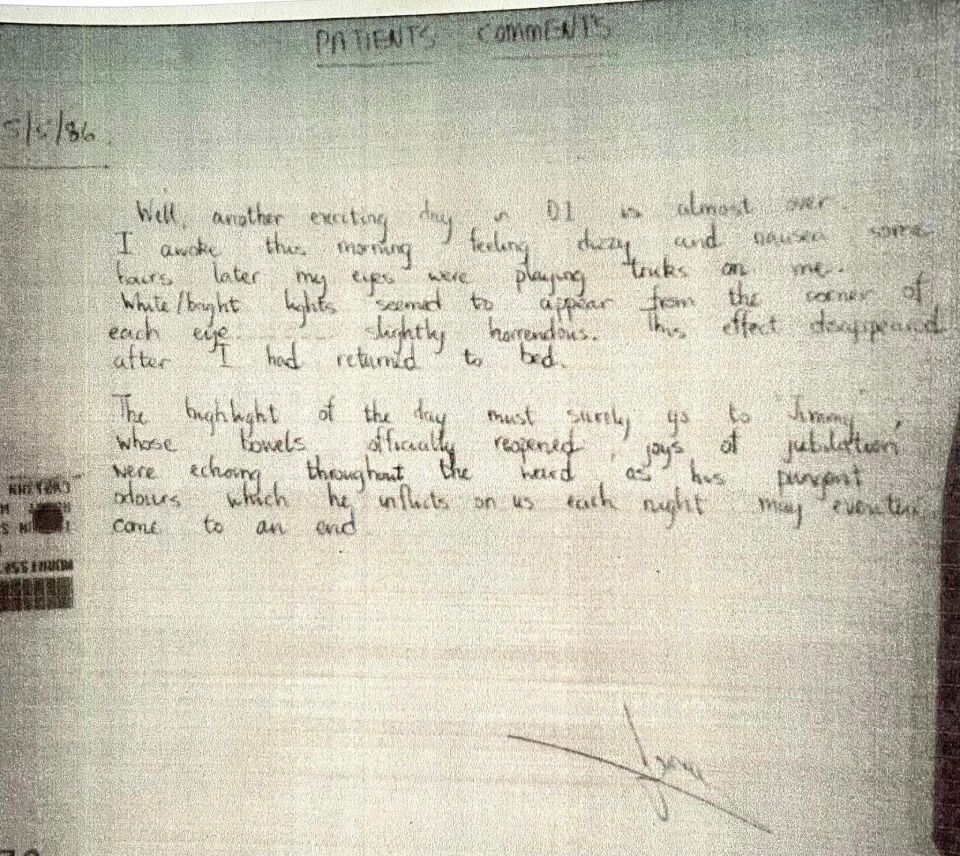 PATIENTS COMMENTS
5/5/86.
Well, another exciting day in D1 is almost over.
I awoke this morning feeling dizzy and nausea some
hours later my eyes were playing tricks on me.
White/bright lights seemed to appear from the corner of
each eye ... slightly horrendous. This effect disappeared
after I had returned to bed.
The highlight of the day must surely go to "Jimmy"
whose bowels officially reopened, joys of jubilation
were echoing throughout the ward as his pungent
odours which he inflicts on us each night may
come to an end.